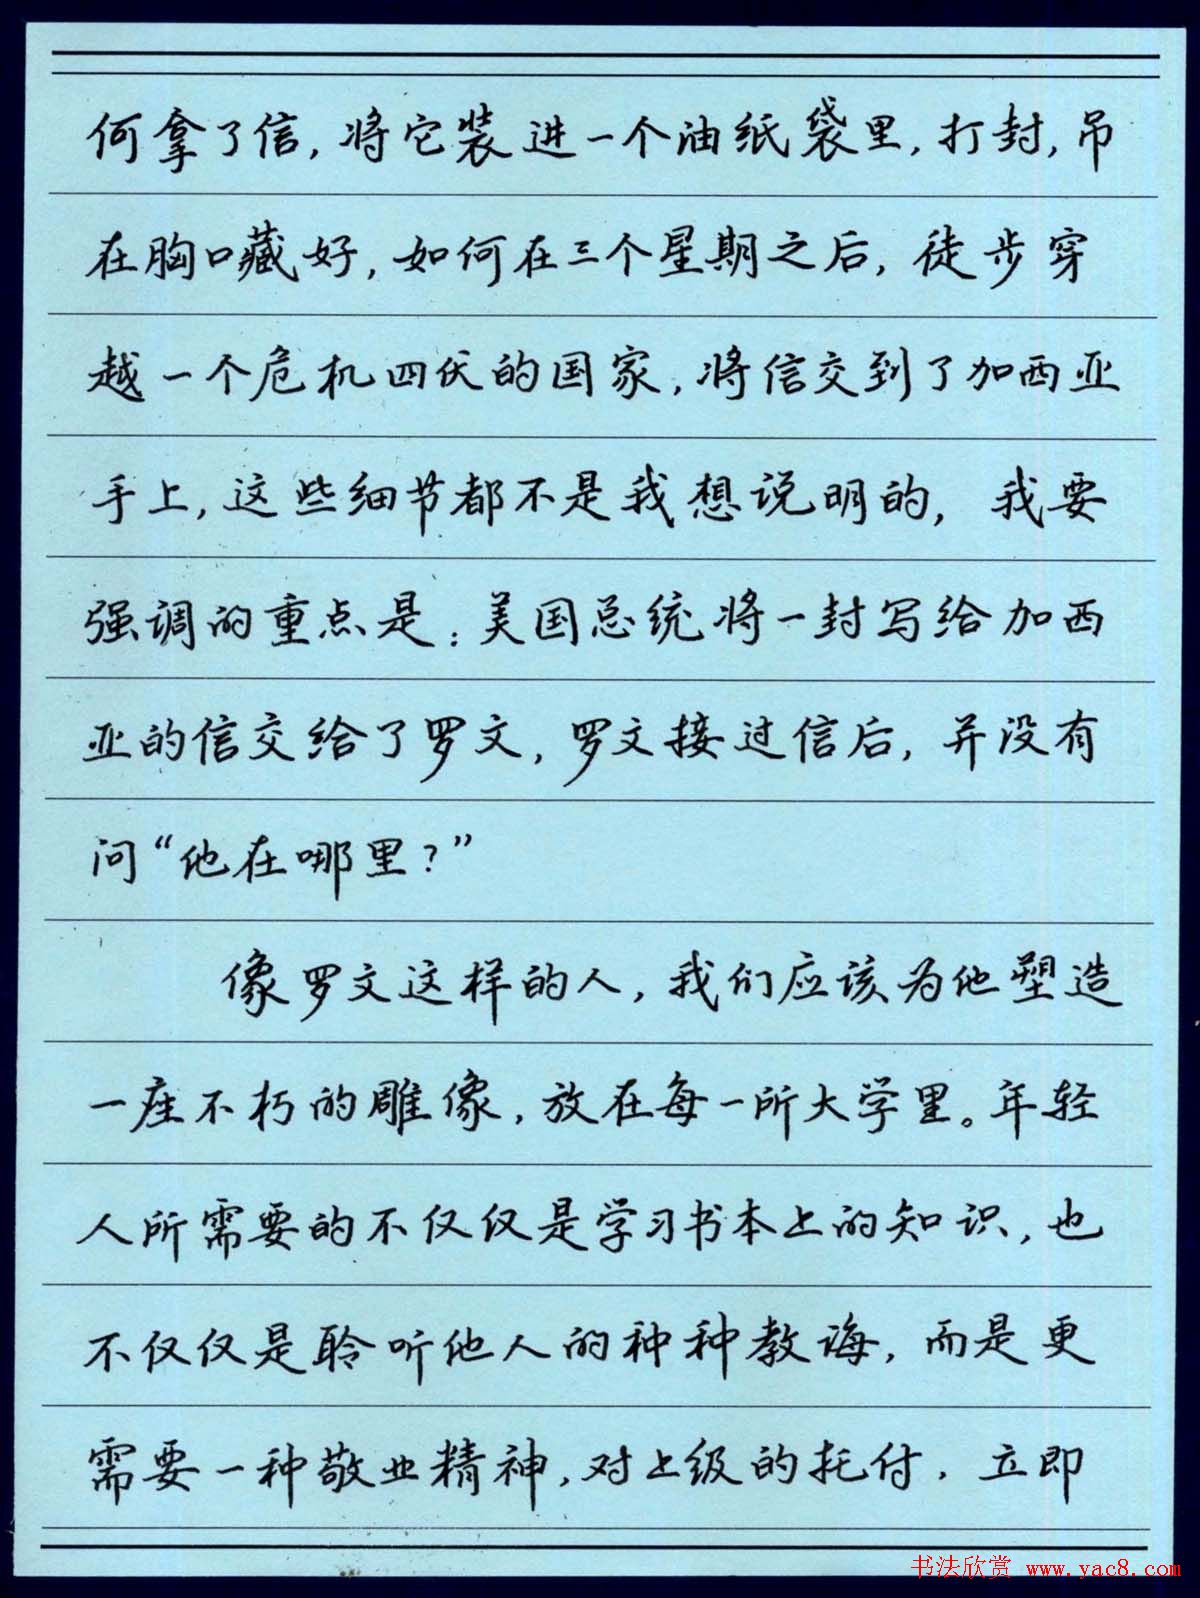 何拿了信，将它装进一个油纸袋里，打封，吊
在胸口藏好，如何在三个星期之后，徒步穿
越一个危机四伏的国家，将信交到了加西亚
手上，这些细节都不是我想说明的，我要
强调的重点是：美国总统将一封写给加西
亚的信交给了罗文，罗文接过信后，并没有
问“他在哪里？”
像罗文这样的人，我们应该为他塑造
一座不朽的雕像，放在每一所大学里。年轻
人所需要的不仅仅是学习书本上的知识，也
不仅仅是聆听他人的种种教诲，而是更
需要一种敬业精神，对上级的托付，立即
书法欣赏 www.yac8.com